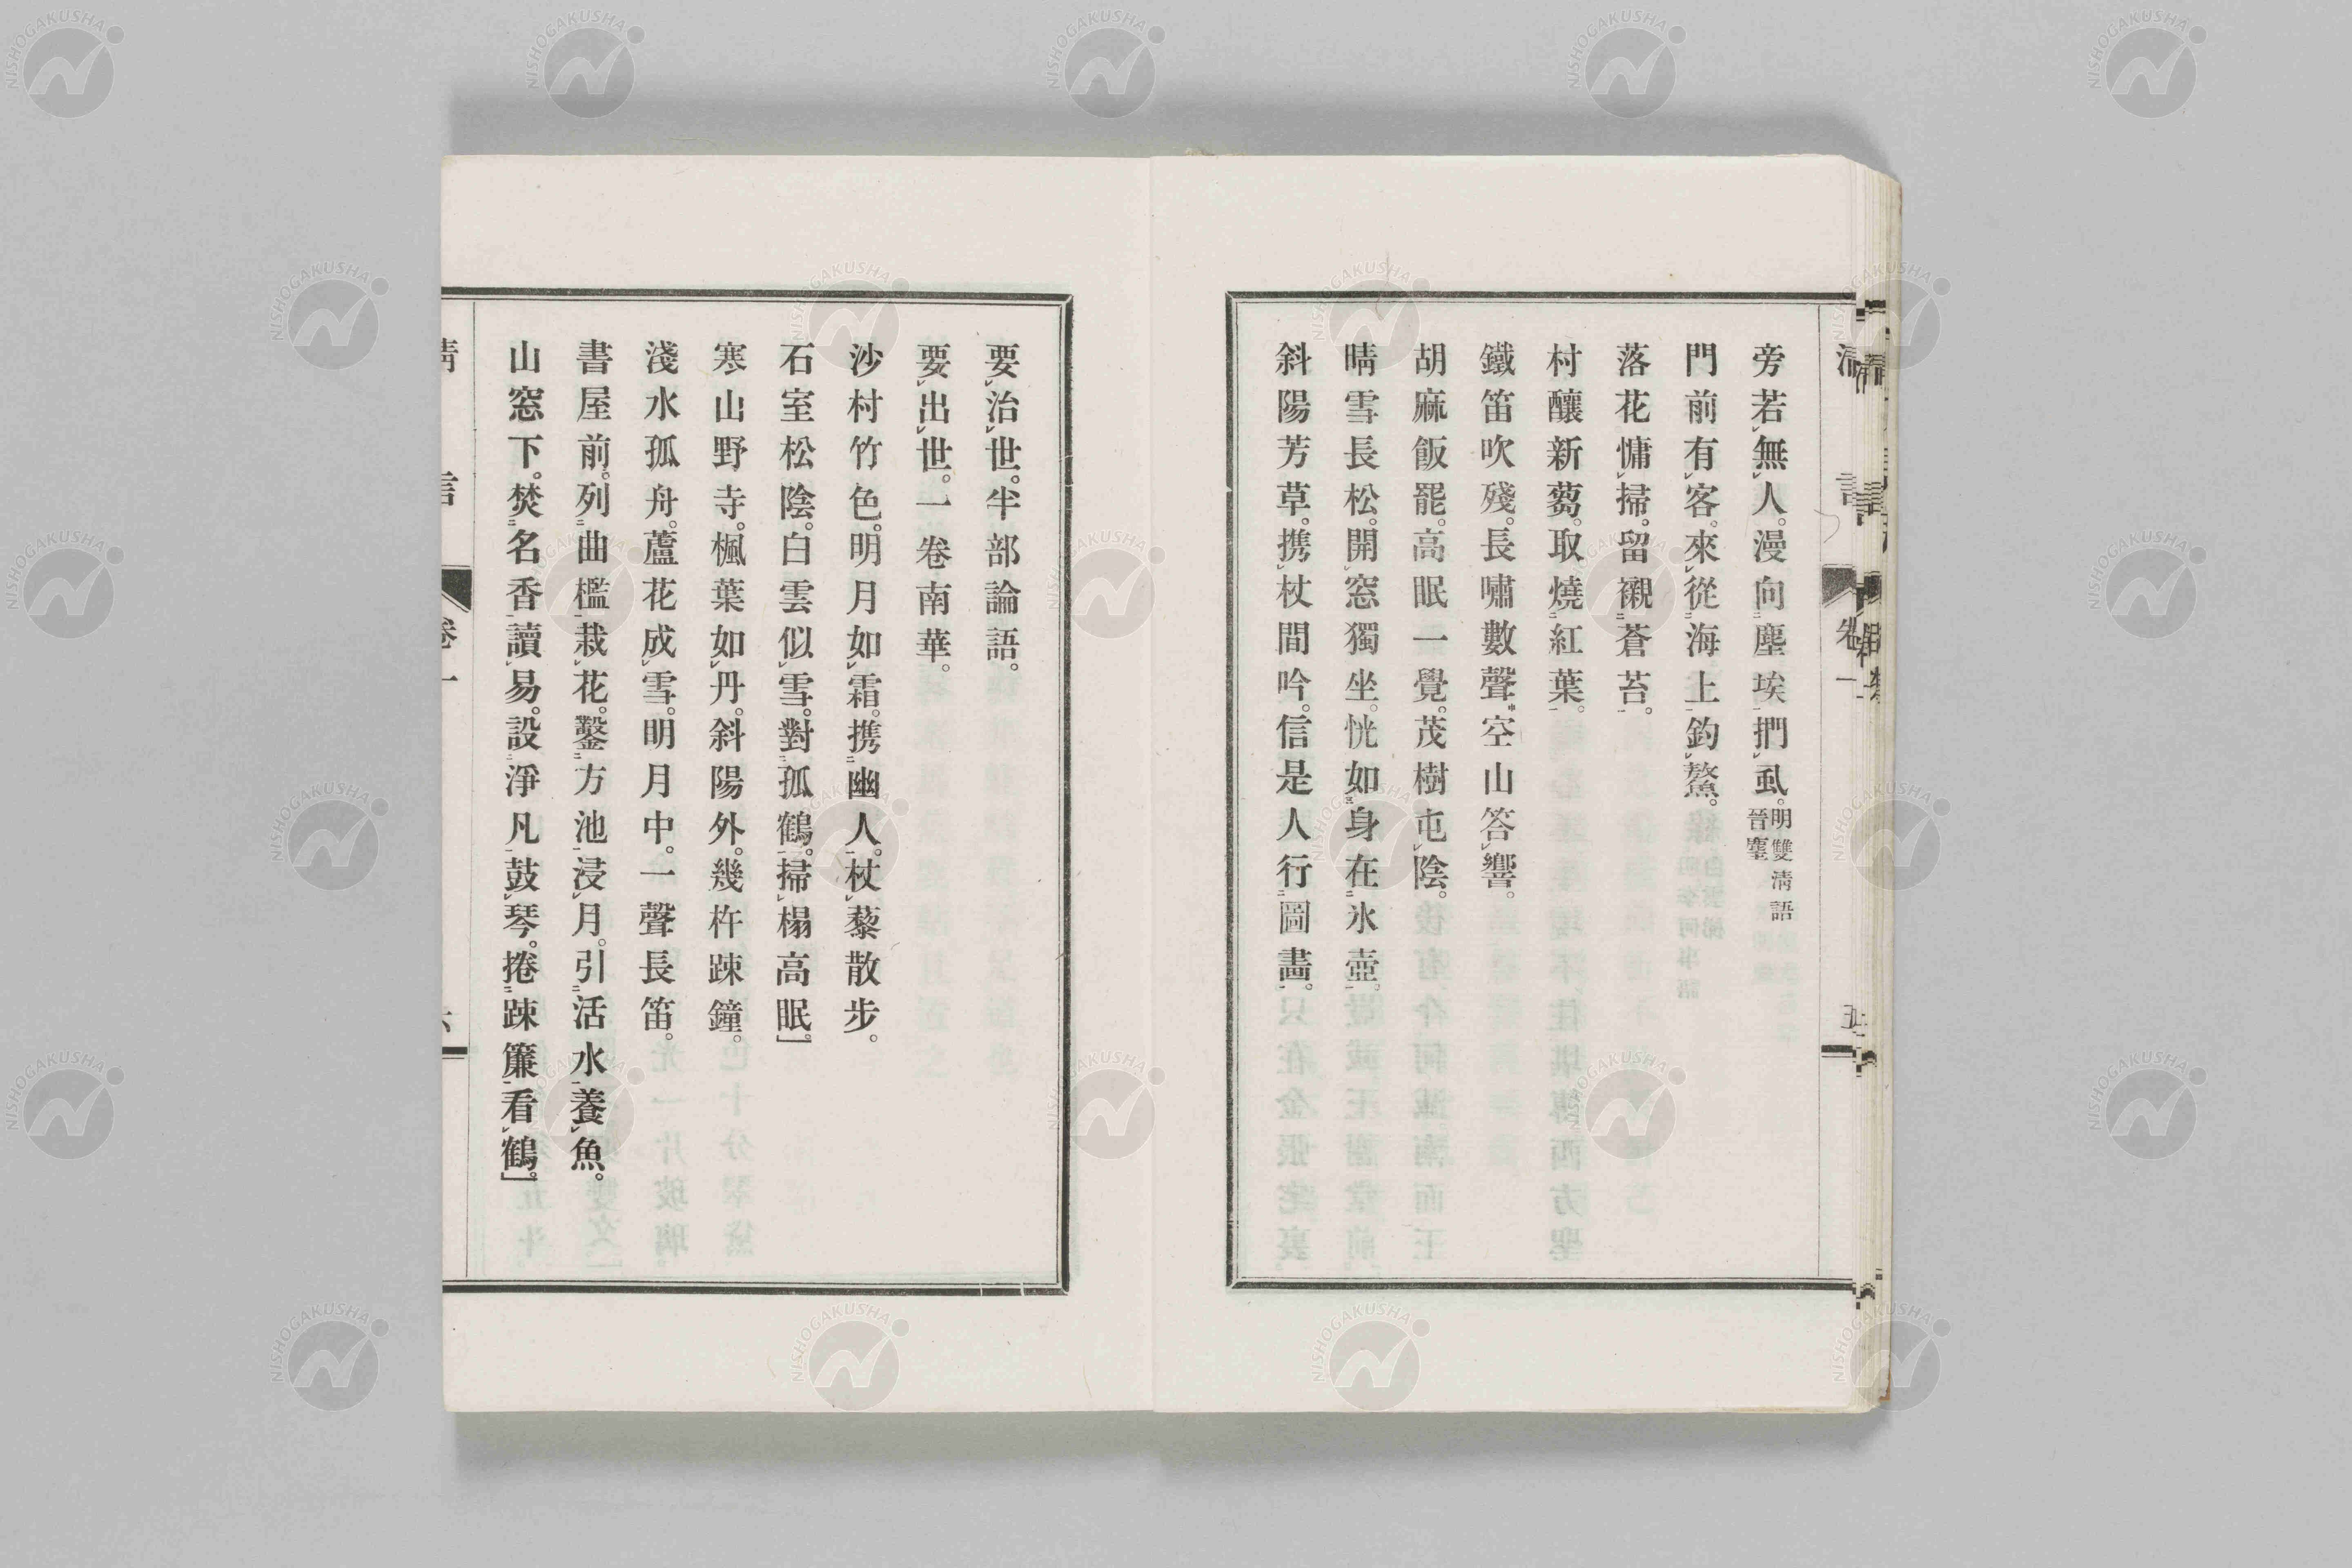 旁若無人。漫向塵埃捫虱。明雙清語 晉塵
門前有客。來從海上釣鰲。
落花慵掃。留襯蒼苔。
村釀新蒭。取燒紅葉。
鐵笛吹殘。長嘯數聲。空山答響。
胡麻飯罷。高眠一覺。茂樹屯陰。
晴雪長松。開窓獨坐。恍如身在氷壺。
斜陽芳草。携杖間吟。信是人行圖畫。
要治世。半部論語。
要出世。一卷南華。
沙村竹色。明月如霜。携幽人。杖藜散步。
石室松陰。白雲似雪。對孤鶴。掃榻高眠。」
寒山野寺。楓葉如丹。斜陽外。幾杵踈鐘。
淺水孤舟。蘆花成雪。明月中。一聲長笛。
書屋前。列曲檻栽花。鑿方池浸月。引活水養魚。
山窓下。焚名香讀易。設淨凡鼓琴。捲踈簾看鶴。」
卷一
NISHOGAKUSHA